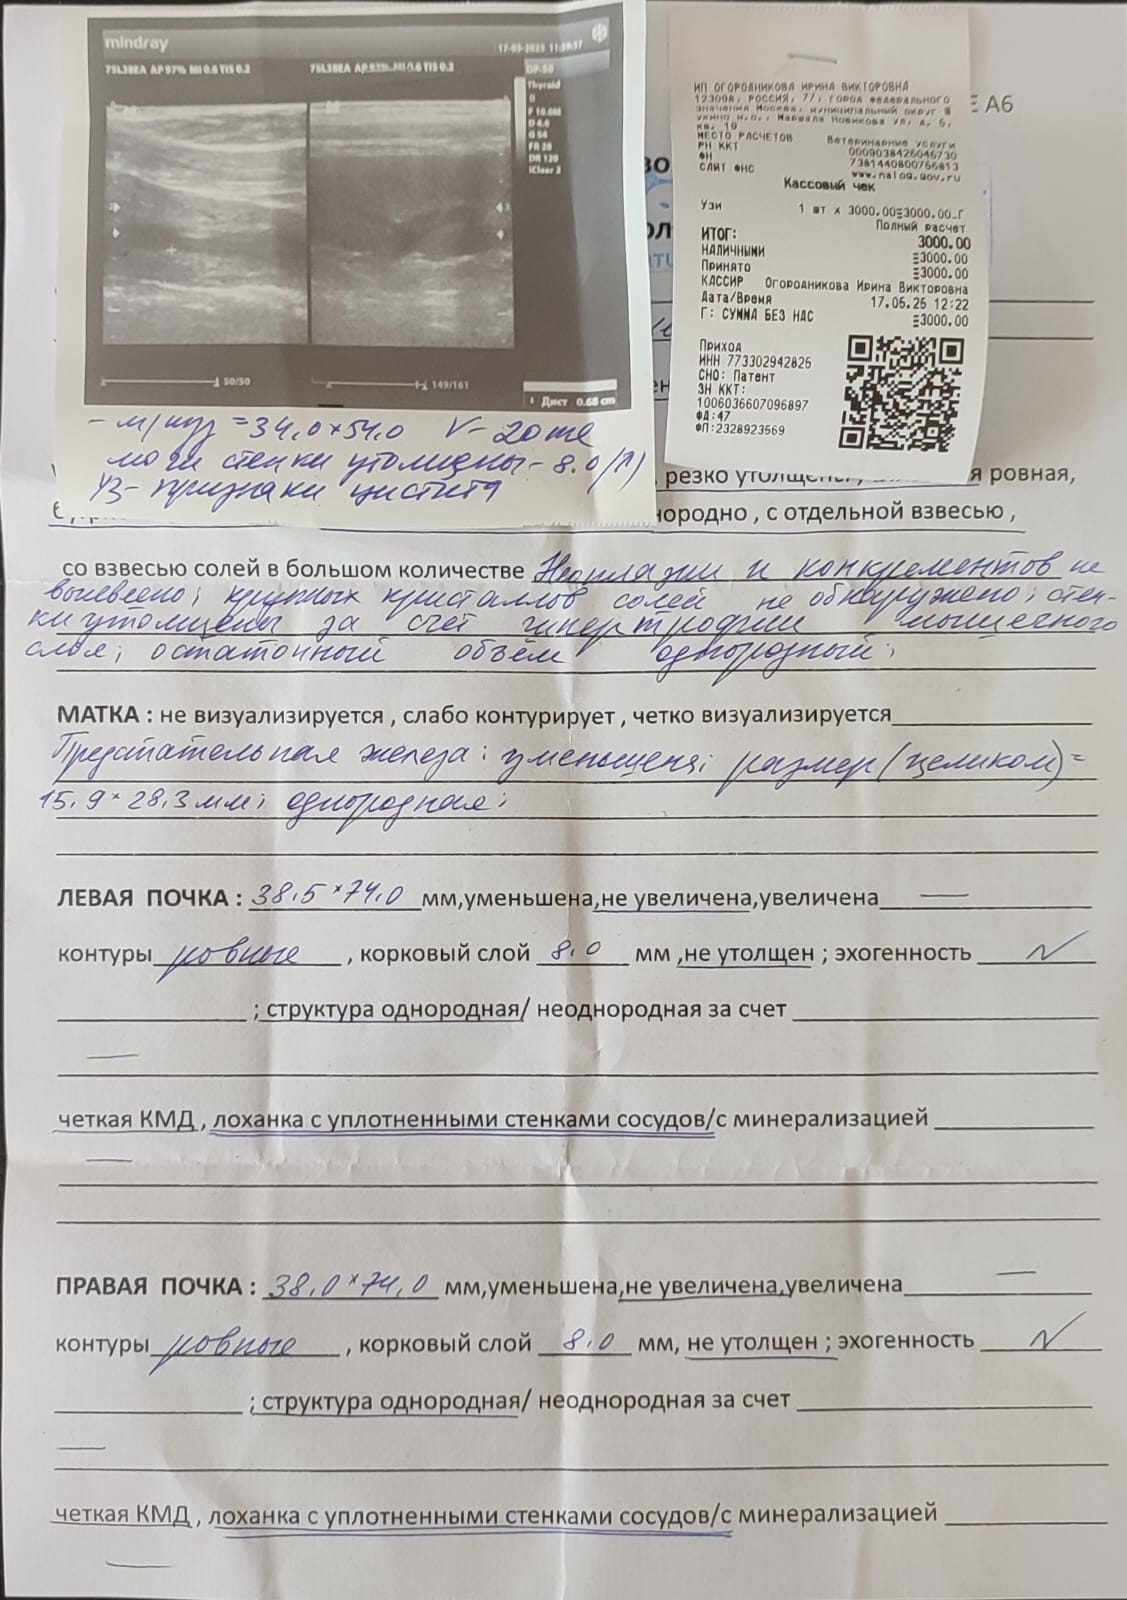 mindray
17-05-2025 11:39:37
75L38EA AP 97% MI 0.6 TIS 0.2
75L38EA AP 97% MI 0.6 TIS 0.2
DP-50
Thyroid
B
F 10.0M
D 4.6
G 54
FR 28
DR 120
iClear 3
50/50
149/161
Дист 0.68 cm
- м/пуз = 34,0×54,0 V- 20 мл
мочи стенки утолщены - 8.0 (л)
УЗ- признаки цистита
ИП ОГОРОДНИКОВА ИРИНА ВИКТОРОВНА
123098, РОССИЯ, 77, город федерального
значения Москва, муниципальный округ Щ
укино в.о., Маршала Новикова ул, д. 6,
кв. 19
МЕСТО РАСЧЕТОВ Ветеринарные услуги
РН ККТ 0009038426046730
ФН 7381440800766813
САЙТ ФНС www.nalog.gov.ru
Кассовый чек
Узи 1 шт х 3000.00≡3000.00_Г
Полный расчет
ИТОГ: 3000.00
НАЛИЧНЫМИ ≡3000.00
Принято ≡3000.00
КАССИР Огородникова Ирина Викторовна
Дата/Время 17.05.25 12:22
Г: СУММА БЕЗ НДС ≡3000.00
Приход
ИНН 773302942825
СНО: Патент
ЗН ККТ:
1006036607096897
ФД:47
ФП:2328923569
А6
, резко утолщены, я ровная,
нородно , с отдельной взвесью ,
со взвесью солей в большом количестве Неоплазии и конкрементов не
выявлено; крупных кристаллов солей не обнаружено; стен-
ки утолщены за счет гипертрофии мышечного
слоя; остаточный объём однородный;
МАТКА : не визуализируется , слабо контурирует , четко визуализируется
Предстательная железа: уменьшена; размер (целиком) =
15,9×28,3 мм; однородная;
ЛЕВАЯ ПОЧКА : 38,5×74,0 мм,уменьшена,не увеличена,увеличена —
контуры ровные , корковый слой 8,0 мм ,не утолщен ; эхогенность N
; структура однородная/ неоднородная за счет
—
четкая КМД , лоханка с уплотненными стенками сосудов/с минерализацией
—
ПРАВАЯ ПОЧКА : 38,0×74,0 мм,уменьшена,не увеличена,увеличена —
контуры ровные , корковый слой 8,0 мм, не утолщен ; эхогенность N
; структура однородная/ неоднородная за счет
—
четкая КМД , лоханка с уплотненными стенками сосудов/с минерализацией
—